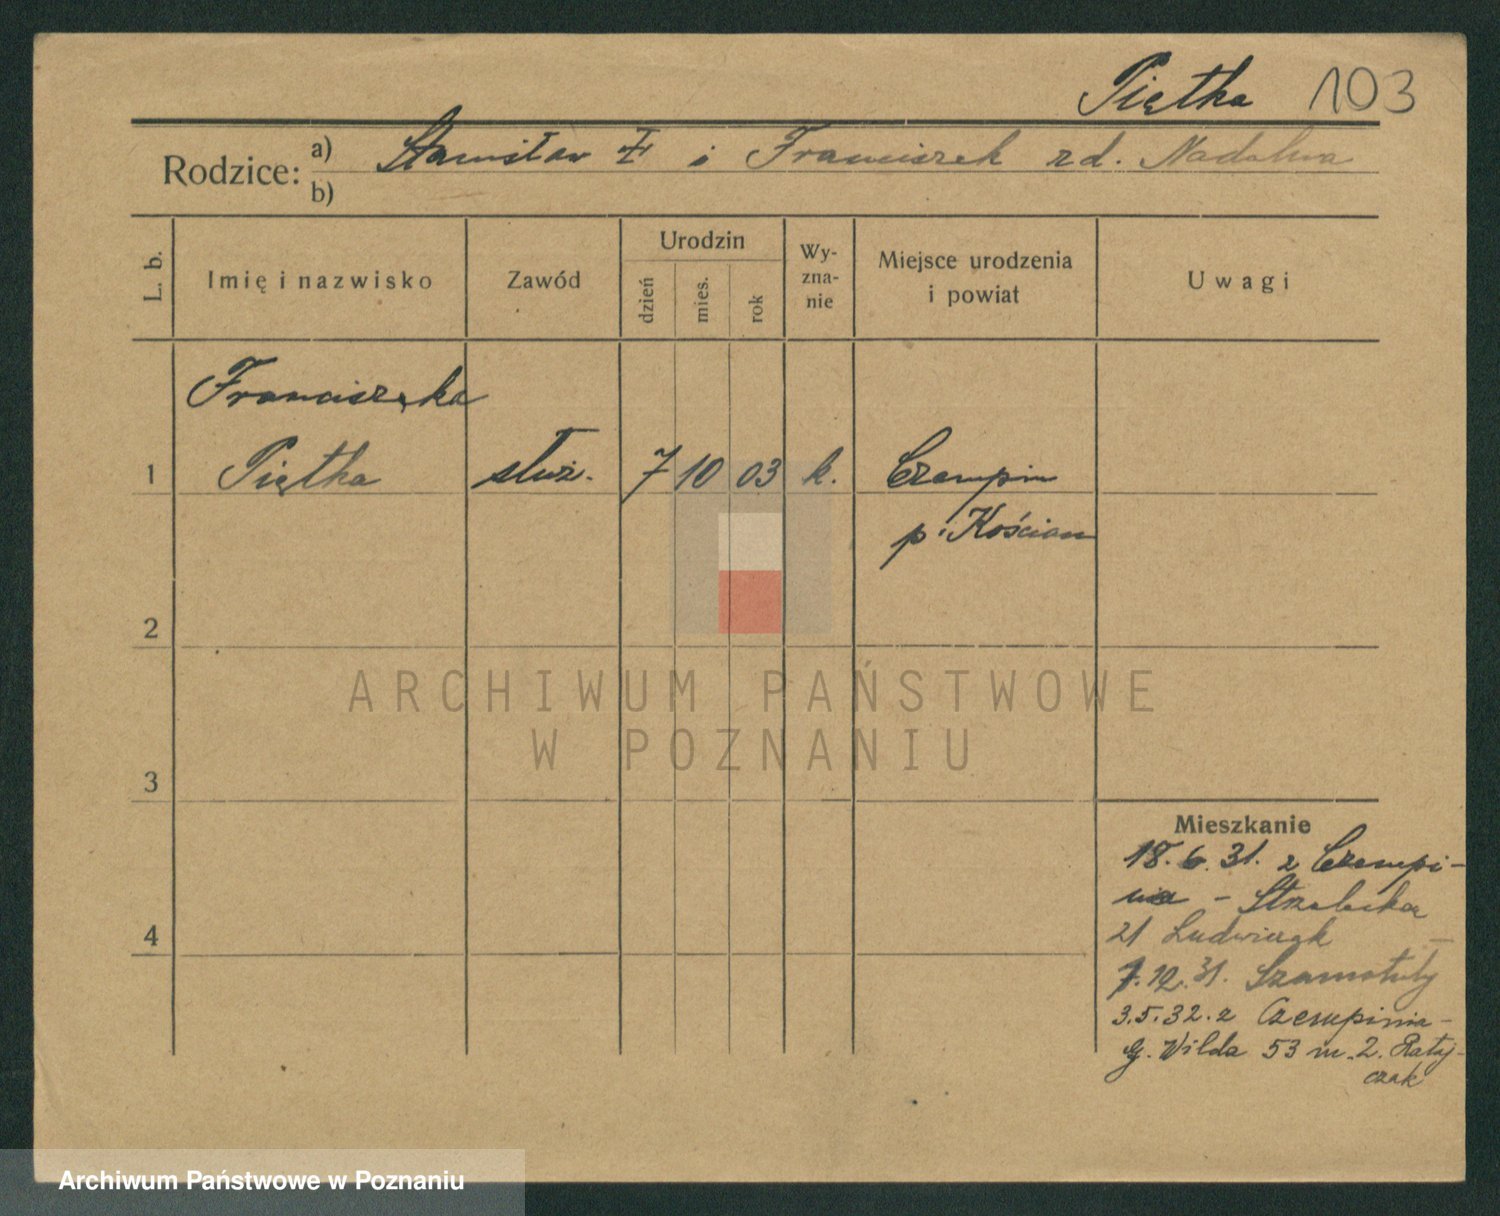 Piętka 103
Rodzice: a) Stanisław i Franciszek zd.
b)
L. b. Imię i nazwisko Zawód Urodzin dzień mies. rok Wy-zna-nie Miejsce urodzenia i powiat Uwagi
Franciszka
1 Piętka służ. 7 10 03 k. Czempin
p. Kościan
2
ARCHIWUM PAŃSTWOWE
W POZNANIU
3
Mieszkanie
18. 6. 31. z Czempi-
nia - Strzelecka
4 21 Ludwiczak
7. 12. 31. Szamotuły
3. 5. 32. z Czempinia -
g. Wilda 53 m. 2. Rataj-
czak
Archiwum Państwowe w Poznaniu